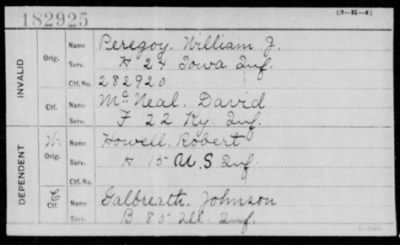 182925
(3-H-4)
INVALID
Orig. Name Peregoy, William J.
Serv. H 24 Iowa Inf.
Ctf. No. 282920
Ctf. Name McNeal, David
Serv. F 22 Ky. Inf.
DEPENDENT
W. Orig. Name Howell, Robert
Serv. H 15 U.S. Inf.
Ctf. No.
Ctf. Name Galbreath, Johnson
Serv. B. 85 Ill. Inf.